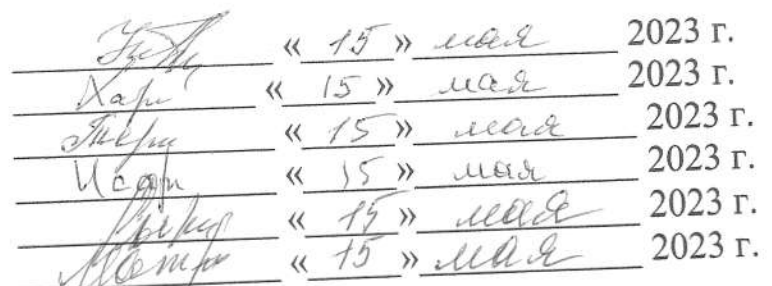 « 15 » мая 2023 г.
Хари « 15 » мая 2023 г.
« 15 » мая 2023 г.
« 15 » мая 2023 г.
« 15 » мая 2023 г.
« 15 » мая 2023 г.